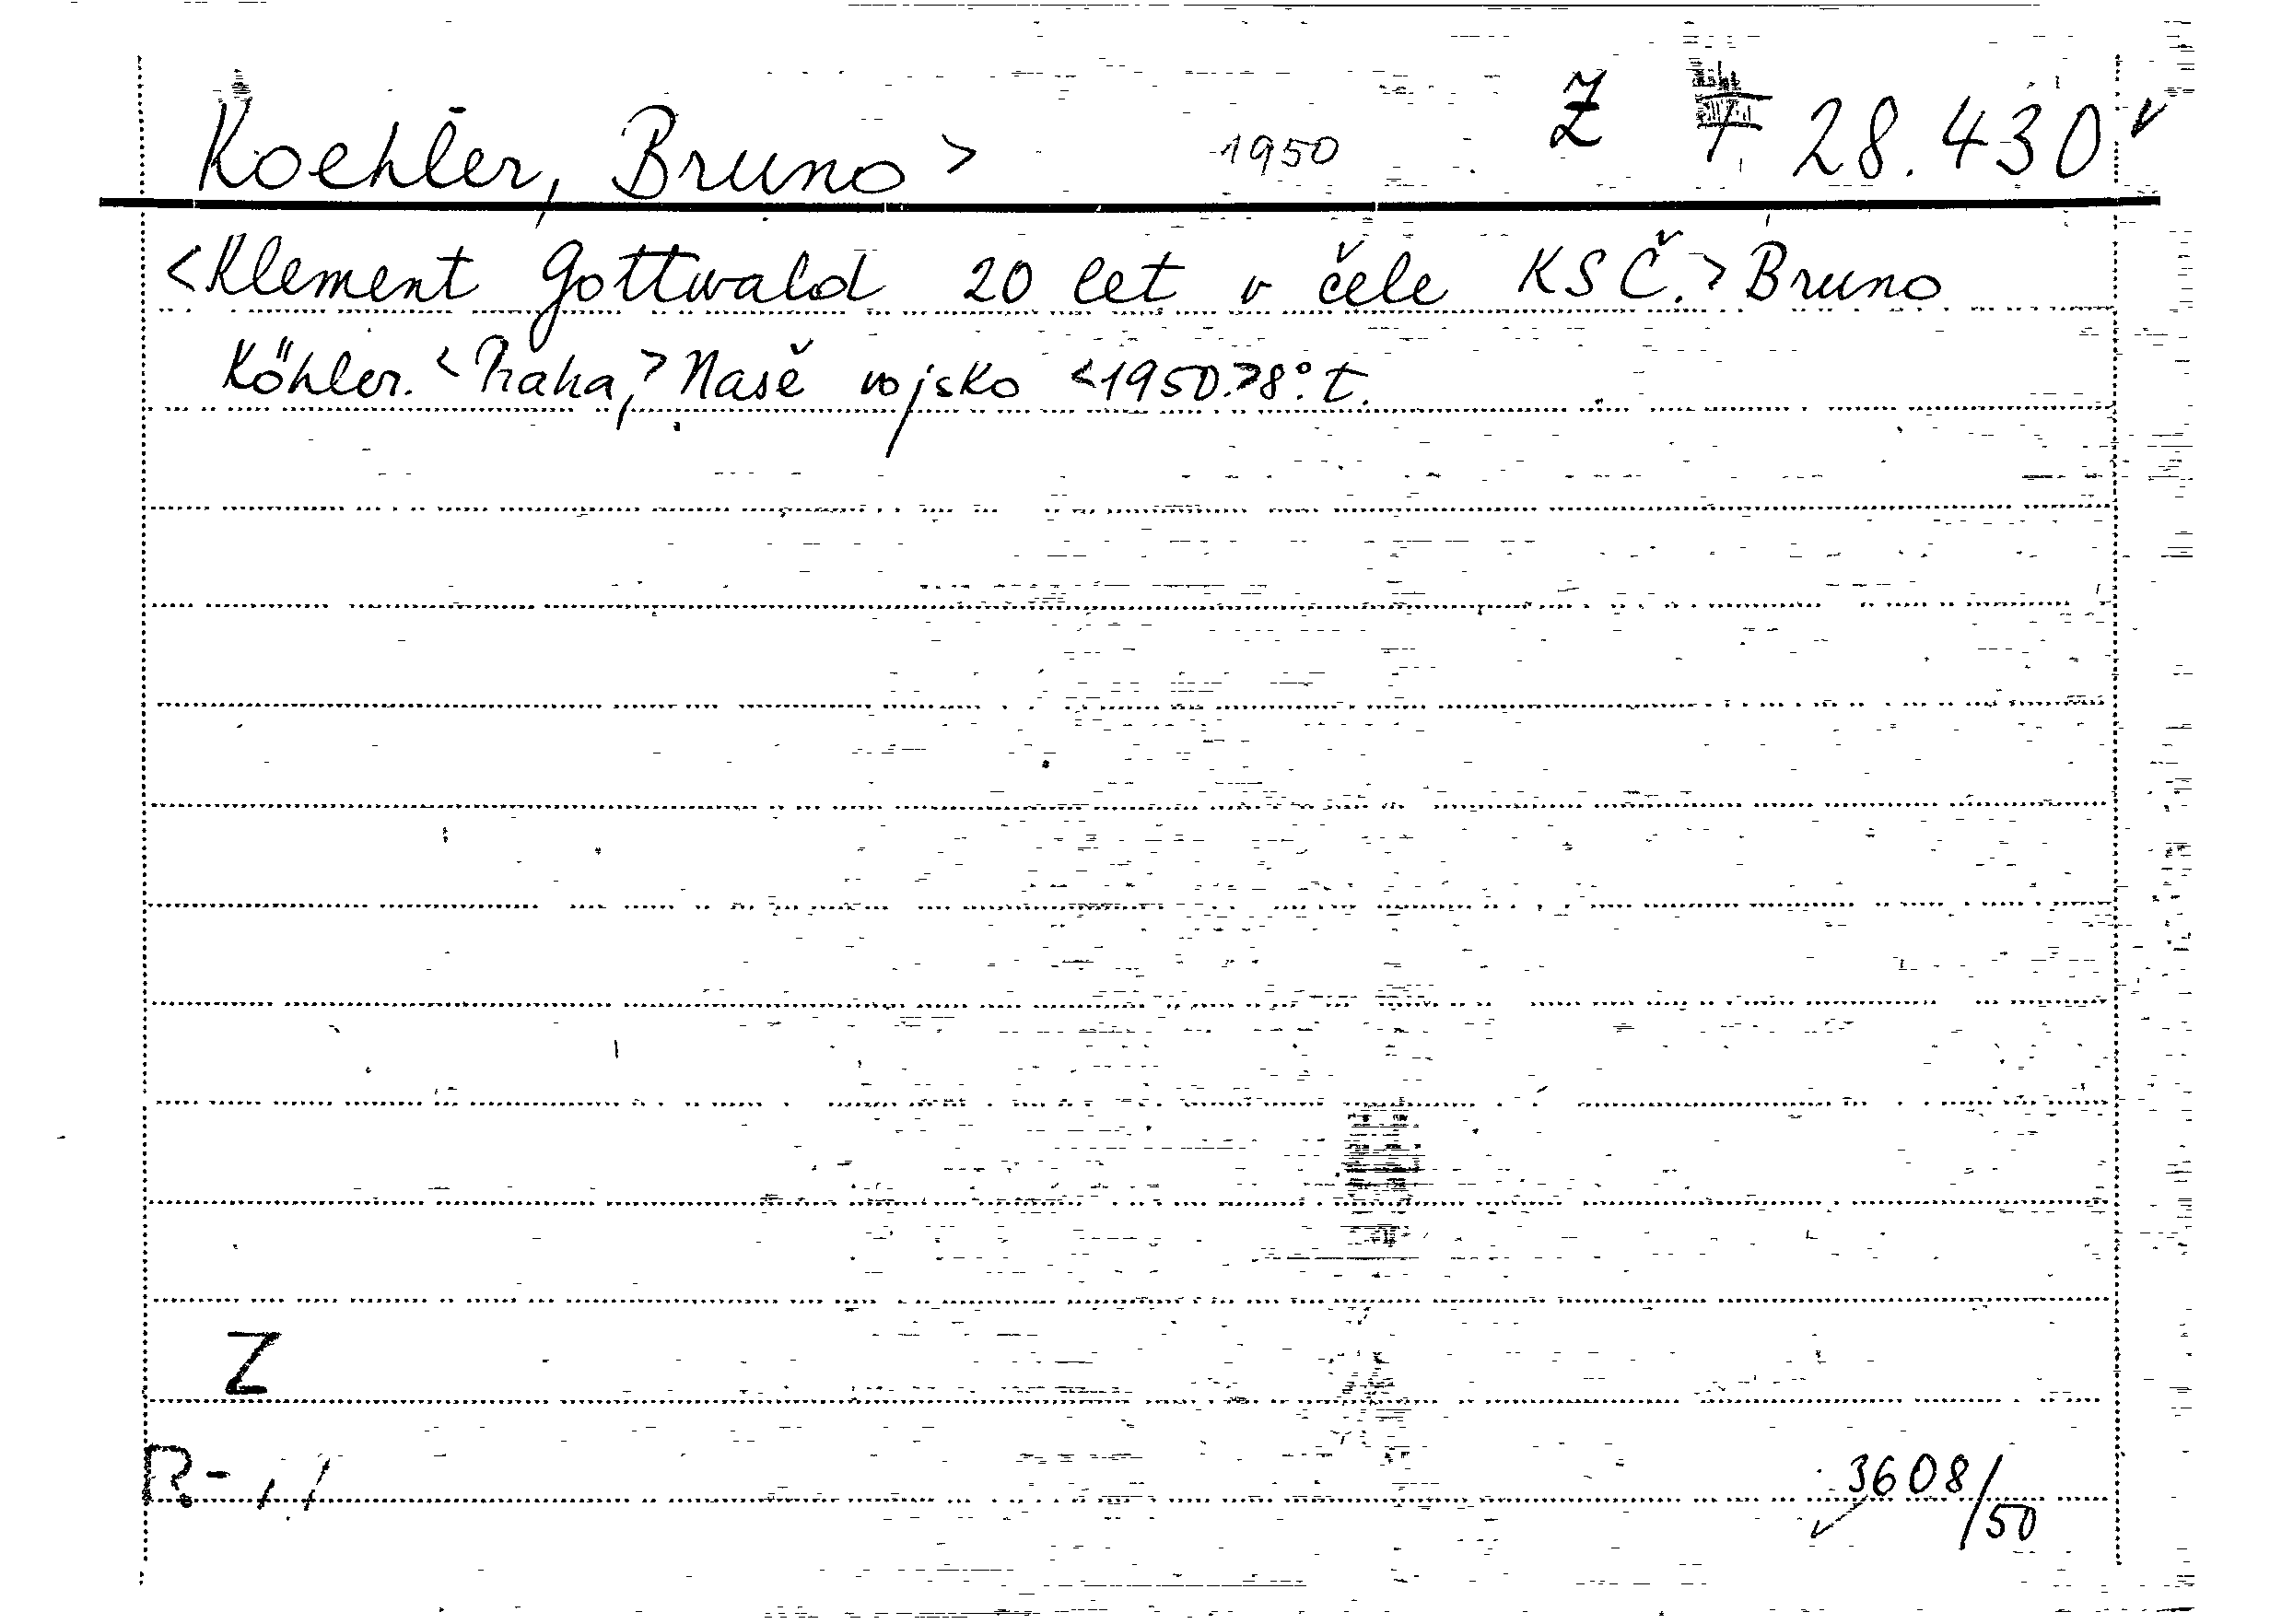 Koehler, Bruno > 1950 Z 28.430
<Klement Gottwald 20 let v čele KSČ.> Bruno
Köhler. <Praha,> Naše vojsko <1950.> 8°. t.
Z
R-
3608/50